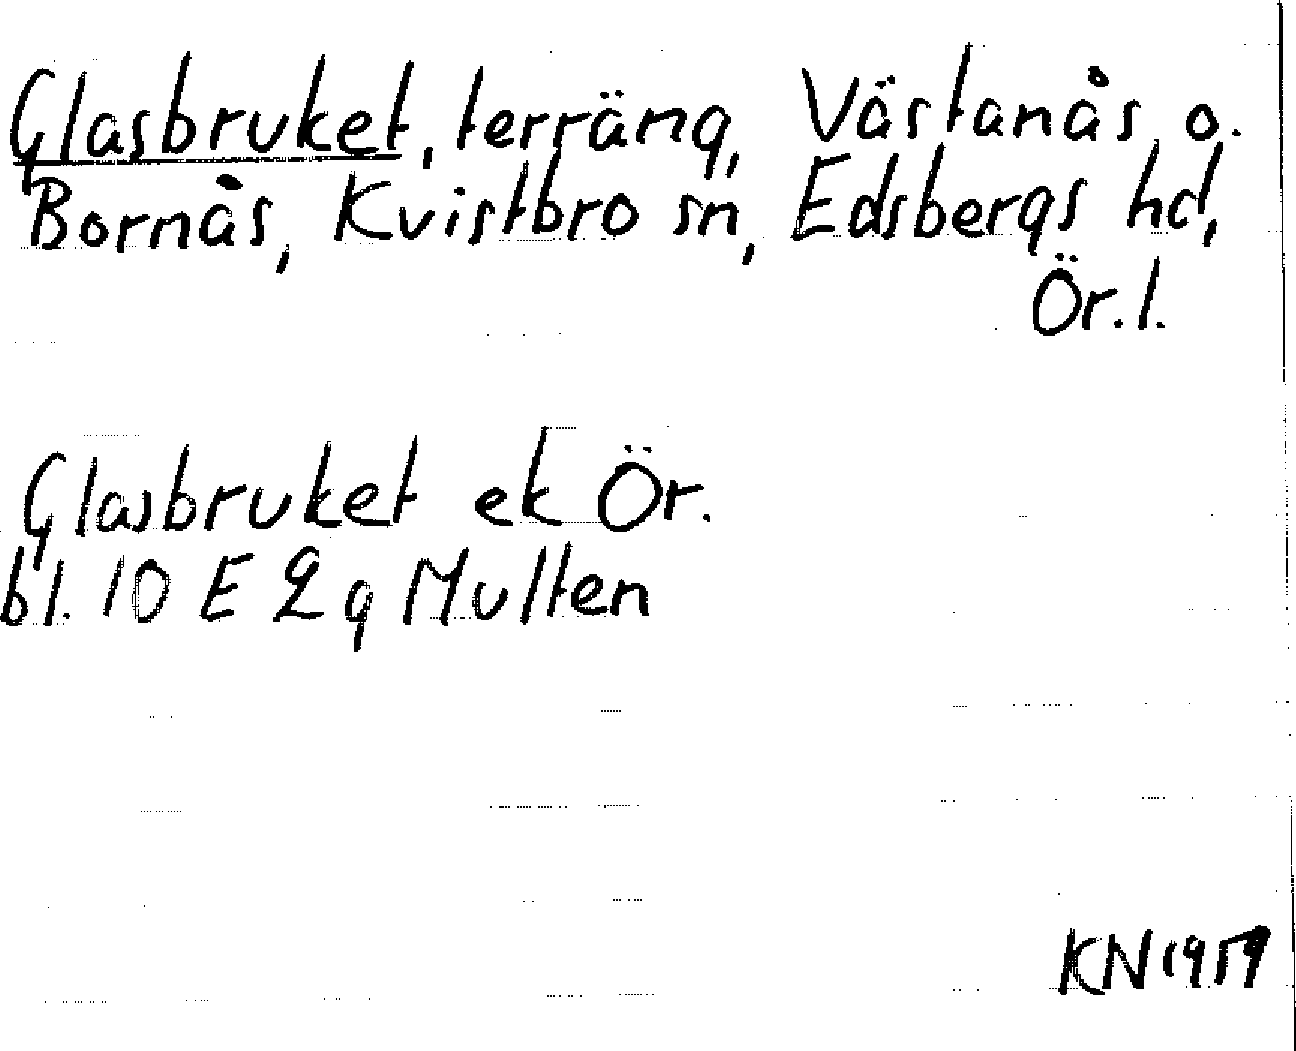 Glasbruket, terräng, Västanås o.
Bornås, Kvistbro sn, Edsbergs hd,
Ör. l.
Glasbruket ek Ör.
bl. 10 E 2g Multen
KN